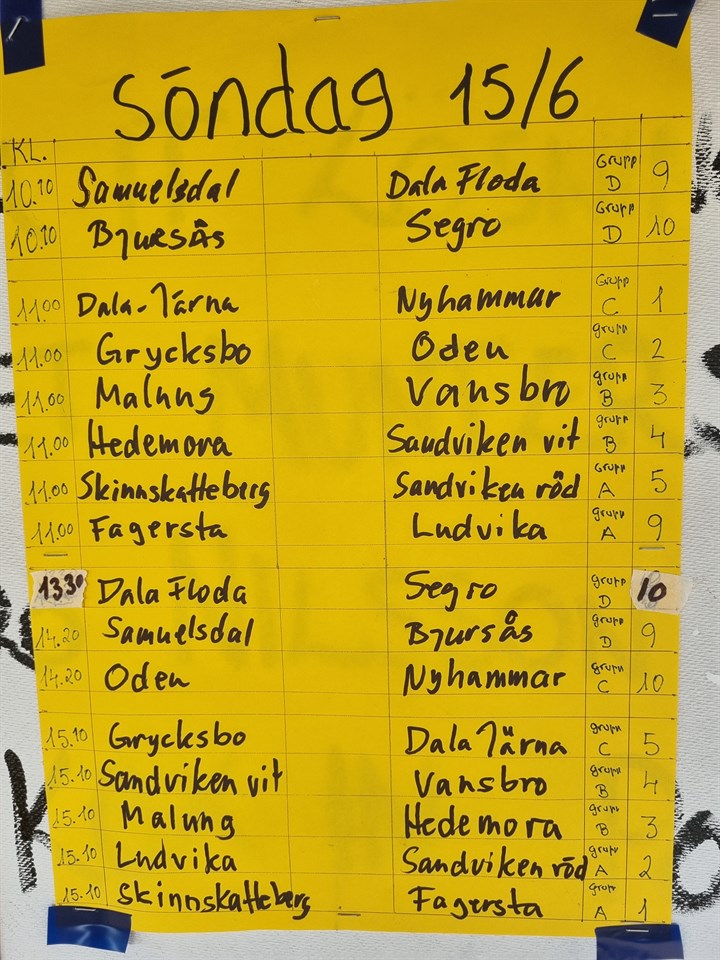 Söndag 15/6
KL.
10.10 Samuelsdal Dala Floda Grupp D 9
10.10 Bjursås Segro Grupp D 10
11.00 Dala-Järna Nyhammar Grupp C 1
11.00 Grycksbo Oden grupp C 2
11.00 Malung Vansbro grupp B 3
11.00 Hedemora Sandviken vit grupp B 4
11.00 Skinnskatteberg Sandviken röd Grupp A 5
11.00 Fagersta Ludvika grupp A 9
13.30 Dala Floda Segro grupp D 10
14.20 Samuelsdal Bjursås grupp D 9
14.20 Oden Nyhammar grupp C 10
15.10 Grycksbo Dala Järna grupp C 5
15.10 Sandviken vit Vansbro grupp B 4
15.10 Malung Hedemora grupp B 3
15.10 Ludvika Sandviken röd grupp A 2
15.10 Skinnskatteberg Fagersta grupp A 1